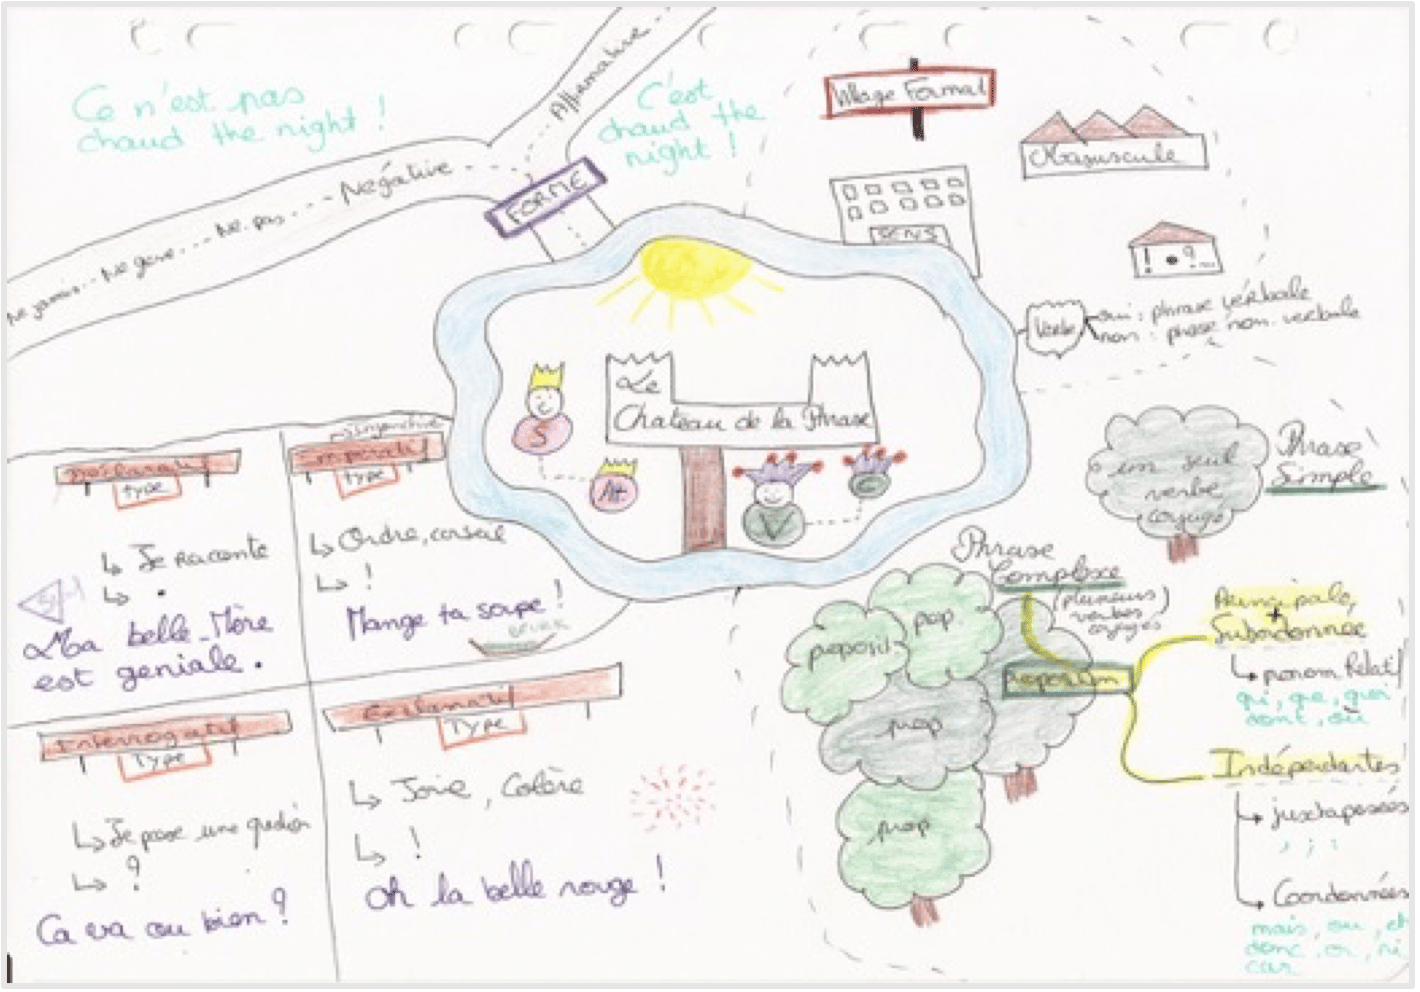 Ce n'est pas
chaud the night !
Affirmative
C'est
chaud the
night !
Négative
Ne pas
Ne jamais
FORME
Village Formal
Majuscule
SENS
! . ? ...
Verbe
oui : phrase verbale
non : phrase non verbale
Le
Chateau de la Phrase
S
At
V
C
Déclaratif
type
↳ Je Raconte
↳ .
Ma belle-Mère
est geniale.
injonctive
imperatif
type
↳ Ordre, conseil
↳ !
Mange ta soupe !
Interrogatif
Type
↳ Je pose une question
↳ ?
Ca va ou bien ?
Exclamatif
Type
↳ Joie, Colère
↳ !
Oh la belle rouge !
Phrase
Simple
un seul
verbe
conjugé
Phrase
Complexe
(plusieurs)
verbes
conjugés
proposit°
prop
prop
prop
Proposition
Principale
+
Subordonnée
↳ pronom Relatif
qui, que, quoi
dont, où
Indépendantes
↳ juxtaposées
, ; :
↳ Coordonnées
mais, ou, et
donc, or, ni
car